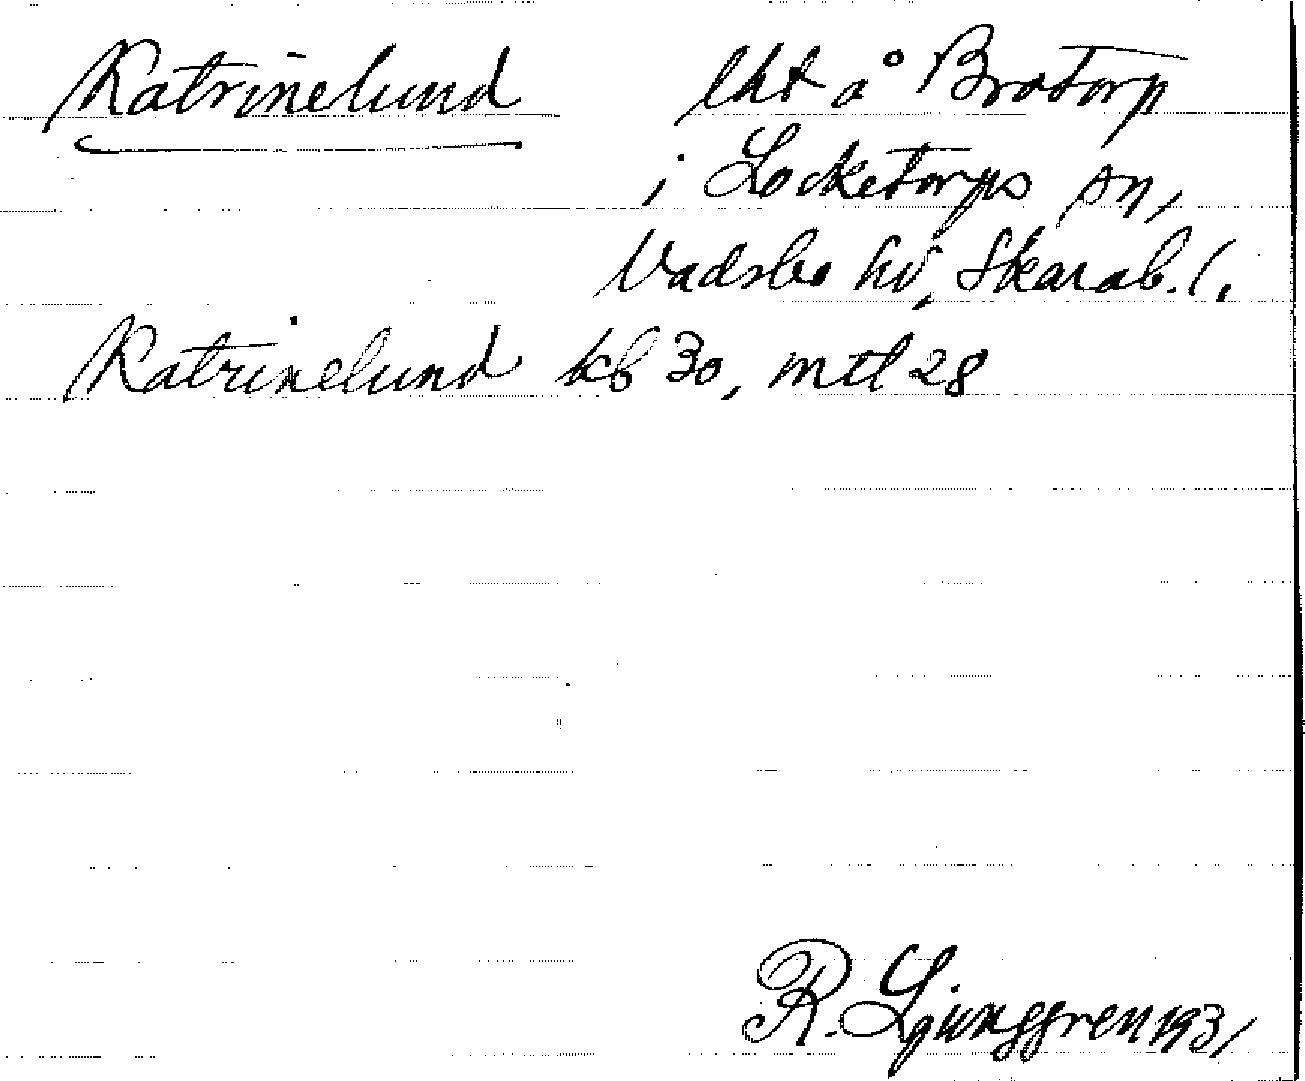 Katrinelund lht å Brotorp
i Locketorps sn,
Vadsbo hd, Skarab. l.
Katrinelund kb 30, mtl 28
R. Ljunggren 1931